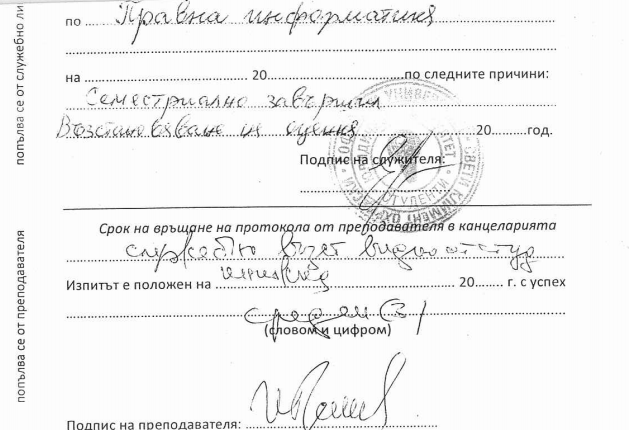 по Правна информатика
на 20 по следните причини:
Семестриално завършил
Възстановяване на оценка 20 год.
Подпис на служителя:
Срок на връщане на протокола от преподавателя в канцеларията
служебно
Изпитът е положен на 20 г. с успех
среден (3)
(словом и цифром)
Подпис на преподавателя:
попълва се от служебно ли
попълва се от преподавателя